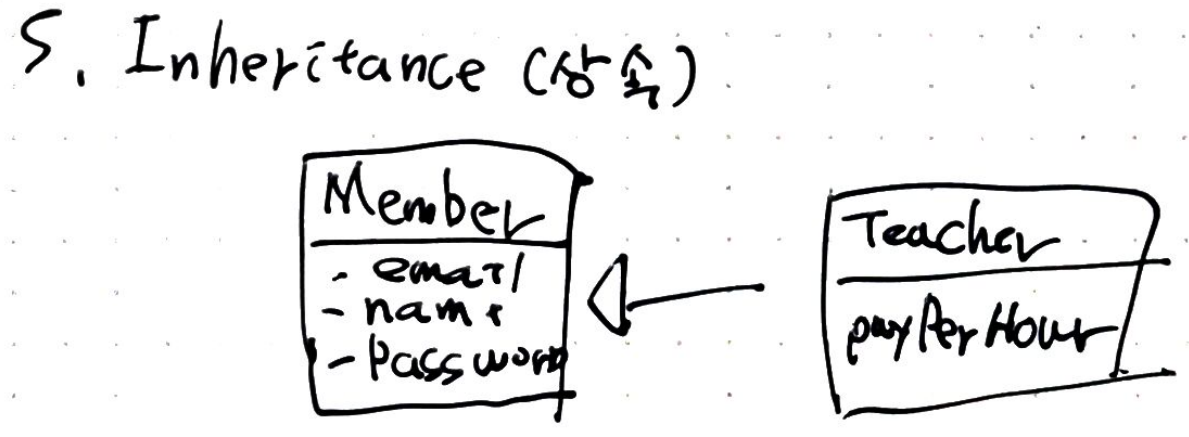 5. Inheritance (상속)
Member
- email
- name
- password
Teacher
payPerHour